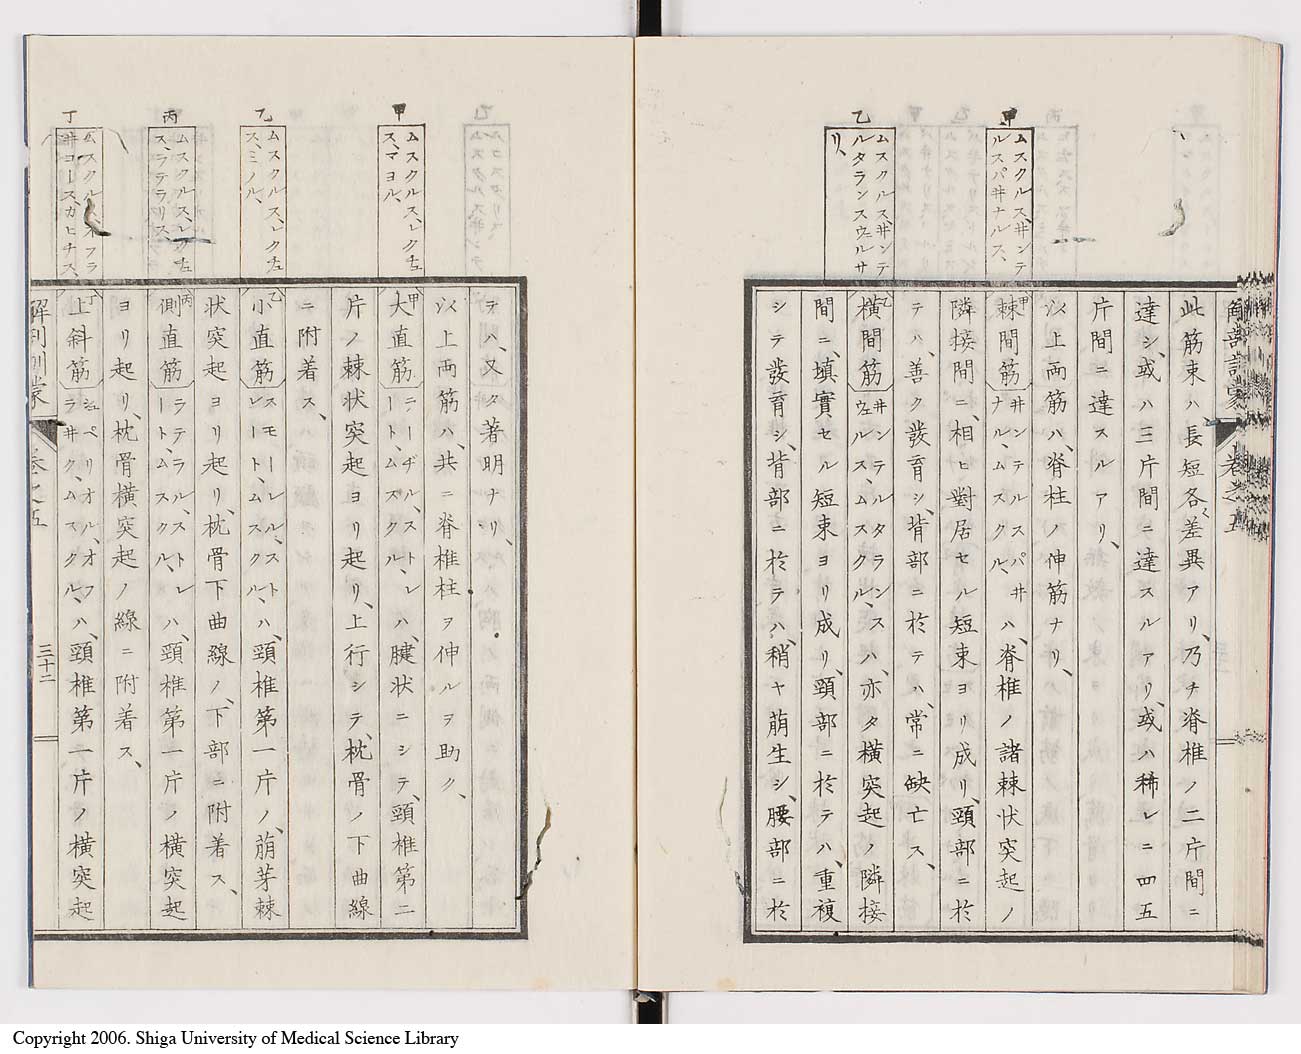 甲
ムスクルス、ヰンテ
ルスパヰナルス、
乙
ムスクルス、ヰンテ
ルタランスウェルサ
リ、
卷之五
此筋束ハ長短各〻差異アリ、乃チ脊椎ノ二片間ニ
達シ、或ハ三片間ニ達スルアリ、或ハ稀レニ四五
片間ニ達スルアリ、
以上兩筋ハ、脊柱ノ伸筋ナリ、
甲棘間筋ヰンテルスパヰナル、ムスクル、ハ、脊椎ノ諸棘状突起ノ
隣接間ニ、相ヒ對居セル短束ヨリ成リ、頸部ニ於
テハ、善ク發育シ、背部ニ於テハ、常ニ缺亡ス、
乙横間筋ヰンテルタランスウェルス、ムスクル、ハ、亦タ横突起ノ隣接
間ニ、填實セル短束ヨリ成リ、頸部ニ於テハ、重複
シテ發育シ、背部ニ於テハ、稍ヤ萠生シ、腰部ニ於
甲
ムスクルス、レクチュ
ス、マヨル、
乙
ムスクルス、レクチュ
ス、ミノル、
丙
ムスクルス、レクチュ
ス、ラテラリス、
丁
ムスクルス、オフラ
ヰコース、カピチス、
ヲハ、又タ著明ナリ、
以上両筋ハ、共ニ脊椎柱ヲ伸ルヲ助ク、
甲大直筋ニーヂル、ストレート、ムスクル、ハ、腱状ニシテ、頸椎第二
片ノ棘状突起ヨリ起リ、上行シテ、枕骨ノ下曲線
ニ附着ス、
乙小直筋スモールレル、ストレート、ムスクル、ハ、頸椎第一片ノ、萠芽棘
状突起ヨリ起リ、枕骨下曲線ノ、下部ニ附着ス、
丙側直筋ラテラル、ストレート、ムスクル、ハ、頸椎第一片ノ横突起
ヨリ起リ、枕骨横突起ノ線ニ附着ス、
丁上斜筋シュペリオル、オフラヰク、ムスクル、ハ、頸椎第一片ノ横突起
解剖訓蒙
卷之五
三十二
Copyright 2006. Shiga University of Medical Science Library